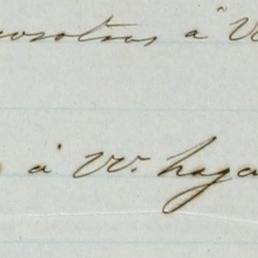 nosotros á V
á VV. haga